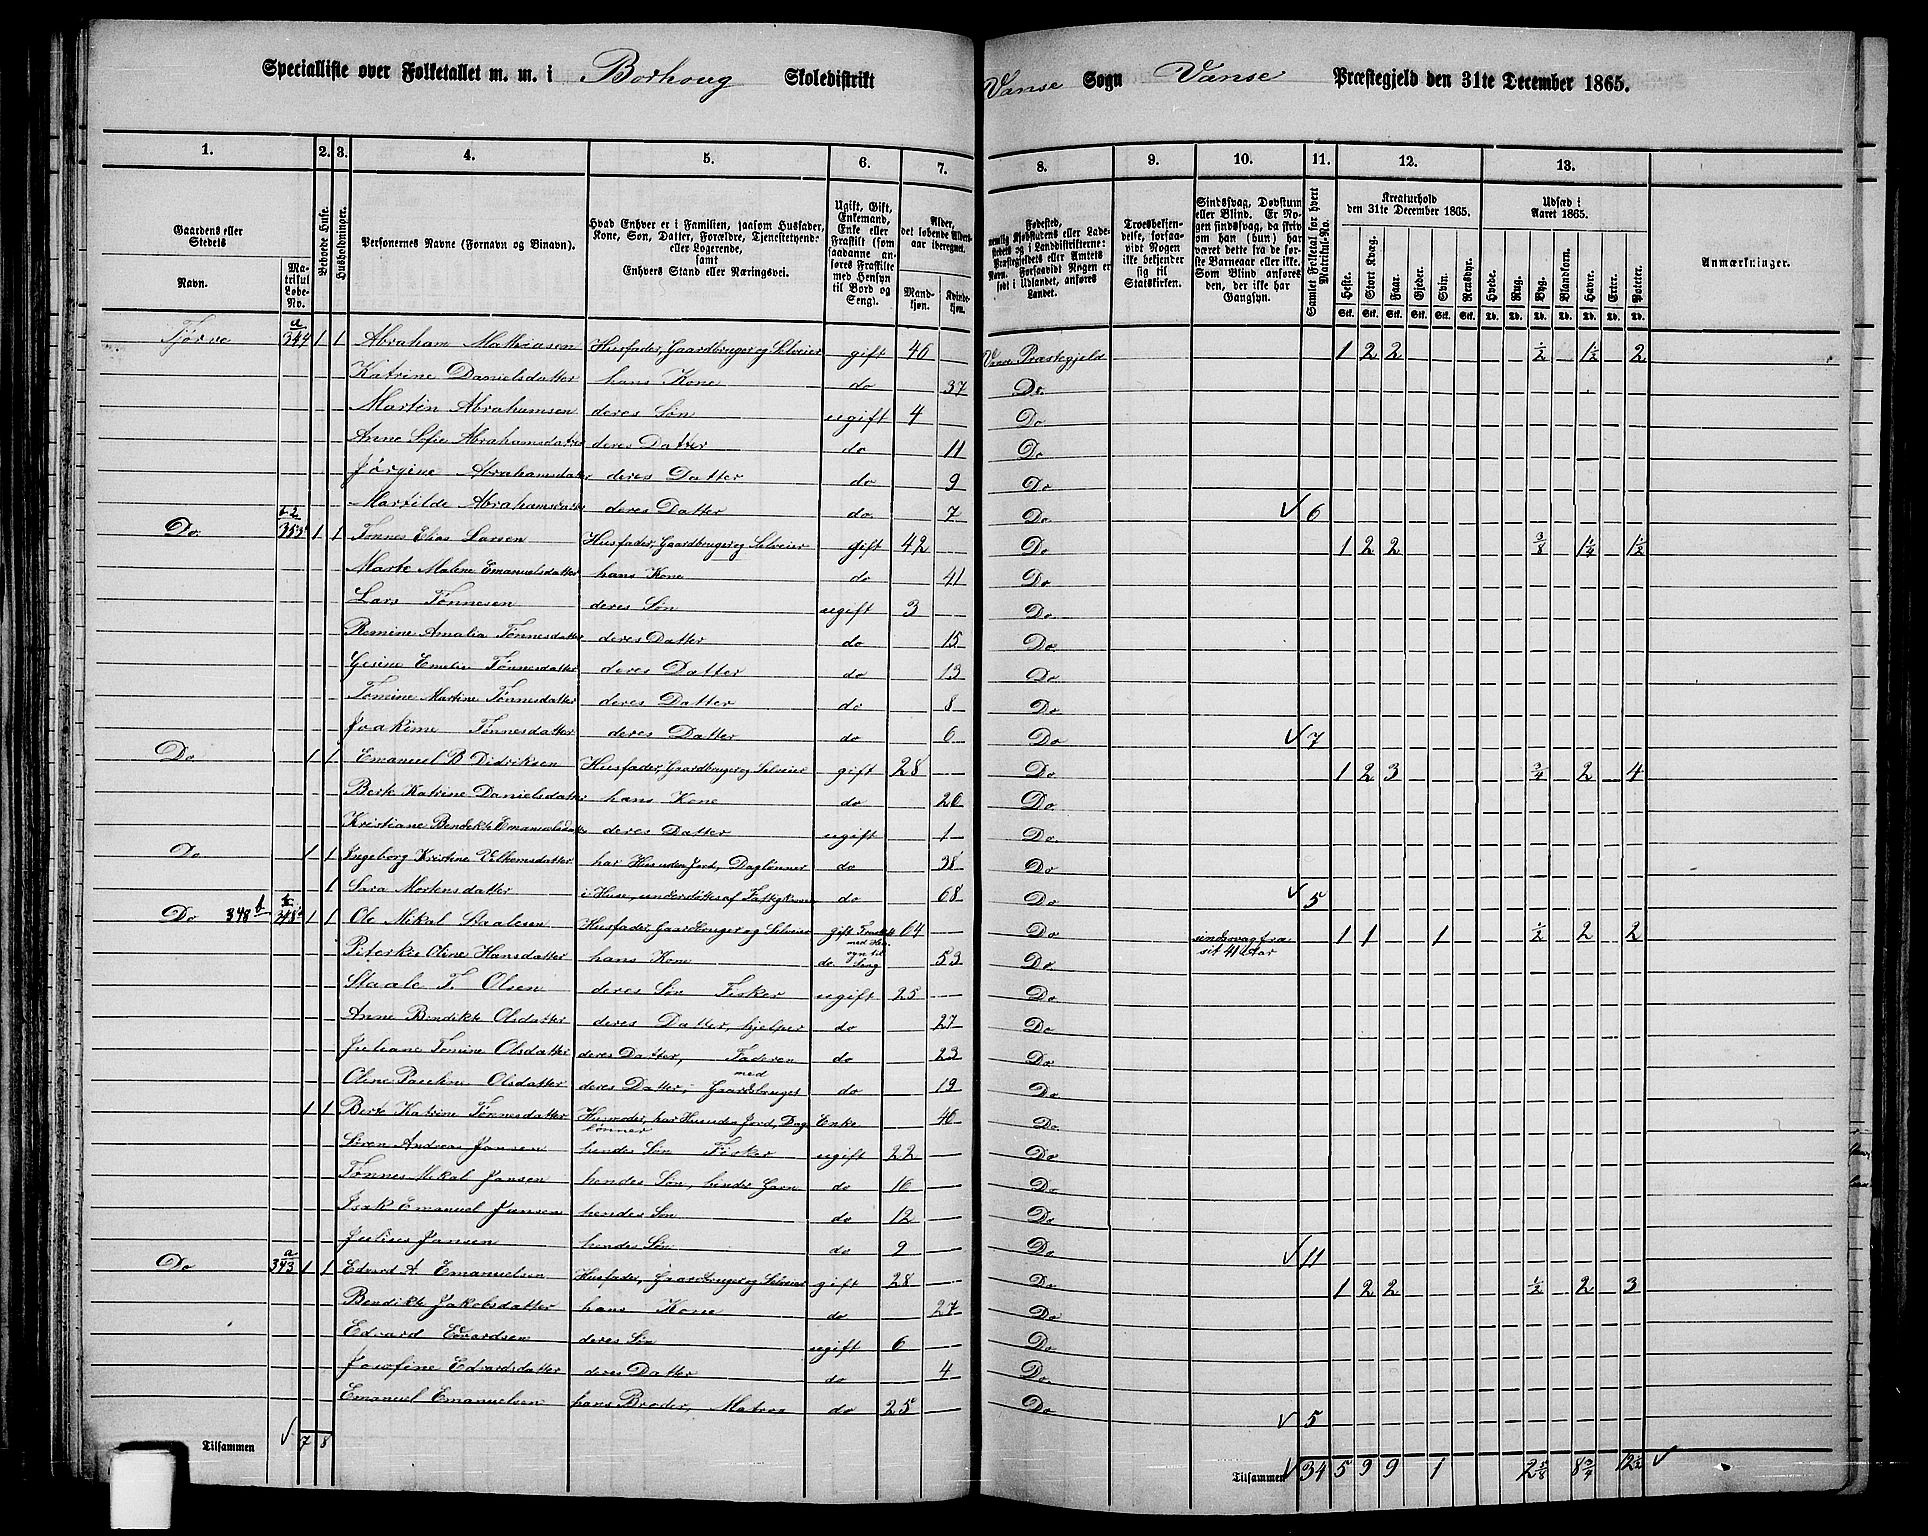 Specialliste over Folketallet m. m. i Borhoug Skoledistrikt Vanse Sogn Vanse Præstegjeld den 31te December 1865.
1. 2. 3. 4. 5. 6. 7. 8. 9. 10. 11. 12. 13.
Gaardens eller Stedets
Navn. Matrikul Løbe-No.
Beboede Huse.
Husholdninger.
Personernes Navne (Fornavn og Binavn).
Hvad Enhver er i Familien, saasom Husfader, Kone, Søn, Datter, Forældre, Tjenestetyende eller Logerende, samt Enhvers Stand eller Næringsvei.
Ugift, Gift, Enkemand, Enke eller Fraskilt (som saadanne anføres Fraskilte med Hensyn til Bord og Seng).
Alder, det løbende Aldersaar iberegnet.
Mandkjøn. Kvindekjøn.
Troesbekjendelse, forsaavidt Nogen ikke bekjender sig til Statskirken.
Sindssvag, Døvstum eller Blind. Er Nogen sindssvag, da skriv om han (hun) har været dette fra de første Barneaar eller ikke. Som Blind anføres den, der ikke har Gangsyn.
Samlet Folketal for hvert Matrikul-No.
Kreaturhold den 31te December 1865.
Heste. Stort Kvæg. Faar. Gjeder. Svin. Rensdyr.
Udsæd i Aaret 1865.
Hvede. Rug. Byg. Blandkorn. Havre. Erter. Poteter.
Anmærkninger.
Tjørve 344 a 1 1 Abraham Mathiasen Husfader, Gaardbruger og Selveier gift 46 Vanse Præstegjeld 1 2 2 ½ 1½ 2
Katrine Danielsdatter hans Kone do 37 Do
Martin Abrahamsen deres Søn ugift 4 Do
Anne Sofie Abrahamsdatter deres Datter do 11 Do
Jørgine Abrahamsdatter deres Datter do 9 Do
Martilde Abrahamsdatter deres Datter do 7 Do 6
Do 1 1 Tønnes Elias Larsen Husfader, Gaardbruger og Selveier gift 42 Do 1 2 2 3/8 1¼ 1½
Marte Malene Emanuelsdatter hans Kone do 41 Do
Lars Tønnesen deres Søn ugift 3 Do
Romine Amalia Tønnesdatter deres Datter do 15 Do
Gesine Emelie Tønnesdatter deres Datter do 13 Do
Tomine Martine Tønnesdatter deres Datter do 8 Do
Joakime Tønnesdatter deres Datter do 6 Do 7
Do 1 1 Emanuel B Didriksen Husfader, Gaardbruger og Selveier gift 28 Do 1 2 3 ¾ 2 4
Berte Katrine Danielsdatter hans Kone do 26 Do
Kristiane Bendikte Emanuelsdatter deres Datter ugift 1 Do
Do 1 1 Ingeborg Kristine Vilhemsdatter har Hus uden Jord, Daglønner do 38 Do
1 Sara Mortensdatter i Huse, understøttes af Fattigkassen do 68 Do 5
Do 348 b 1 1 Ole Mikal Staalesen Husfader, Gaardbruger og Selveier gift 64 Do sindssvag fra sit 41de Aar 1 1 1 ½ 2 2
Peterkie Oline Hansdatter hans Kone do 53 Do
Staale T. Olsen deres Søn Fisker ugift 25 Do
Anne Bendikte Olsdatter deres Datter, hjelper do 27 Do
Juliane Tomine Olsdatter deres Datter, Faderen do 23 Do
med
Oline Pauline Olsdatter deres Datter, Gaardsbruget do 19 Do
1 1 Berte Katrine Tønnesdatter Husmoder, har Hus uden Jord, Daglønner Enke 46 Do
Søren Andreas Jansen hendes Søn Fisker ugift 22 Do
Tønnes Mikal Jansen hendes Søn, do 16 Do
Isak Emanuel Jansen hendes Søn do 12 Do
Julius Jansen hendes Søn do 9 Do 11
Do 343 a 1 1 Edvard A. Emanuelsen Husfader, Gaardbruger og Selveier gift 28 Do 1 2 2 ½ 2 3
Bendikte Jakobsdatter hans Kone do 27 Do
Edvard Edvardsen deres Søn ugift 6 Do
Josefine Edvardsdatter deres Datter do 4 Do
Emanuel Emanuelsen hans Broder, Matros do 25 Do 5
Tilsammen 7 8 Tilsammen 34 5 9 9 1 2 5/8 8 ¾ 12 ½